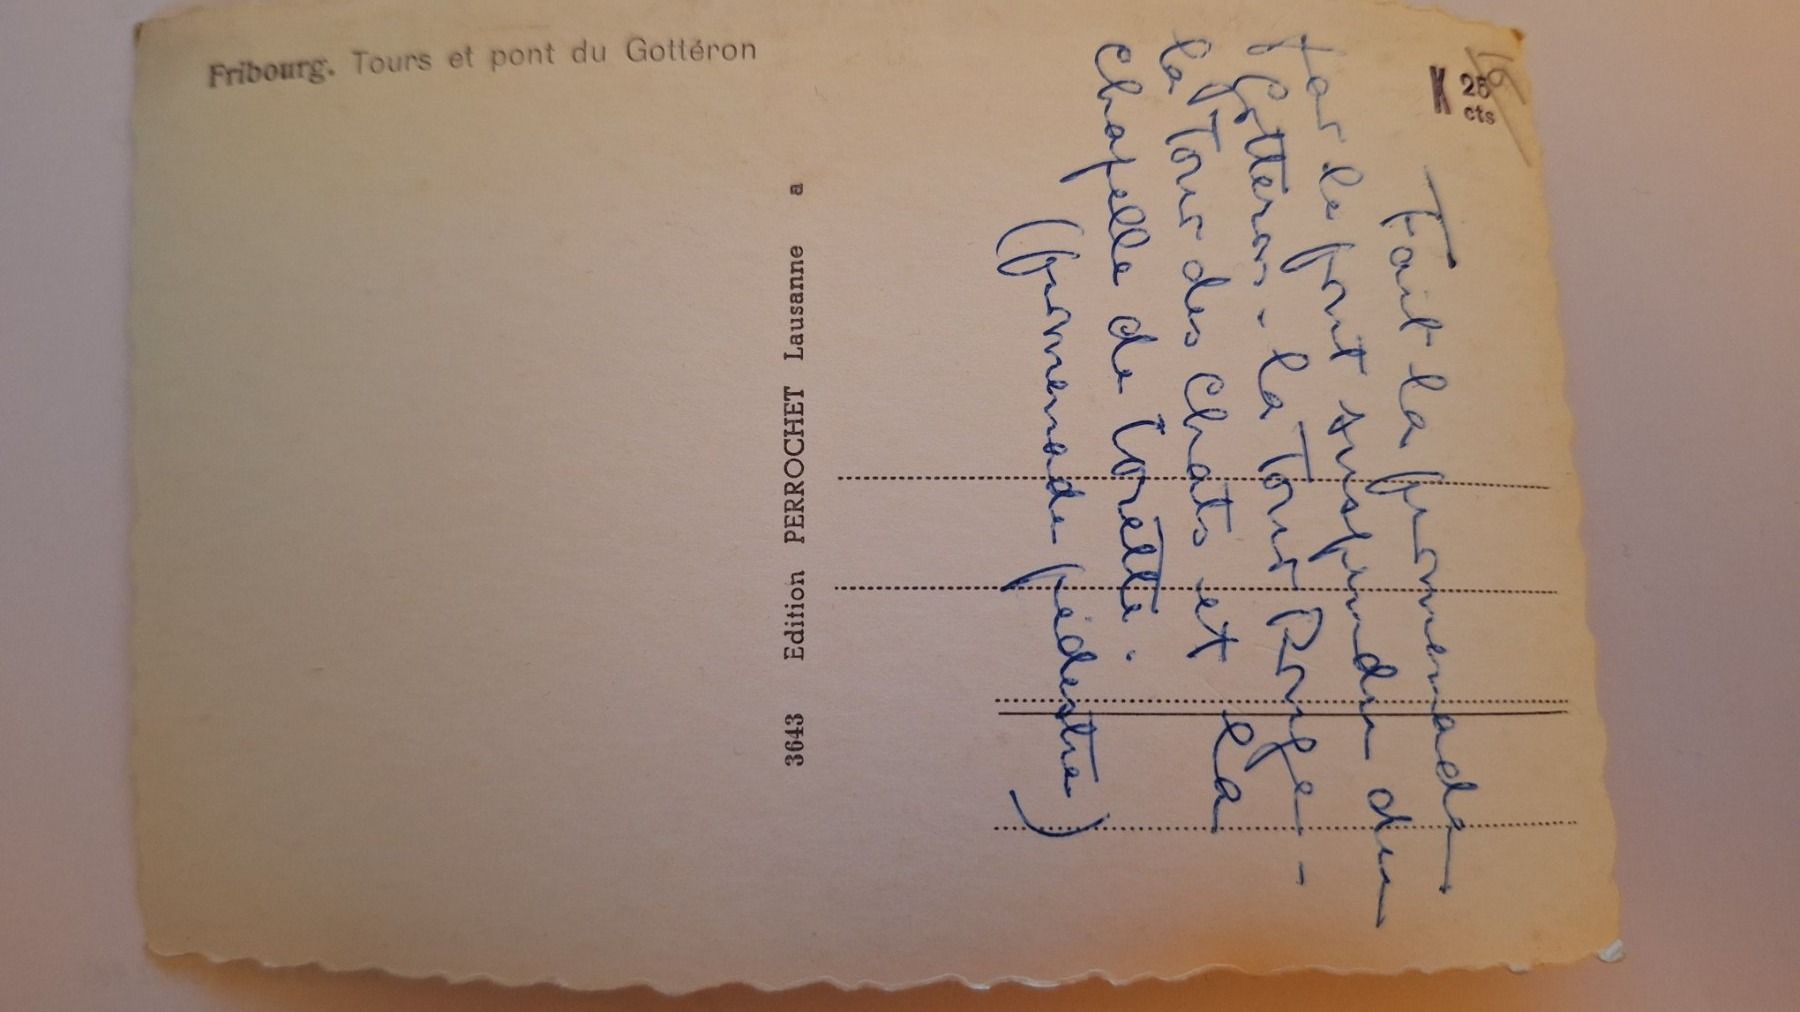 Fribourg. Tours et pont du Gottéron
3643 Edition PERROCHET Lausanne a
K 25
cts
Fait la promenade
par le pont suspendu du
Gotteron - la Tour Rouge -
la Tour des Chats et la
Chapelle de Lorette.
(promenade pédestre)